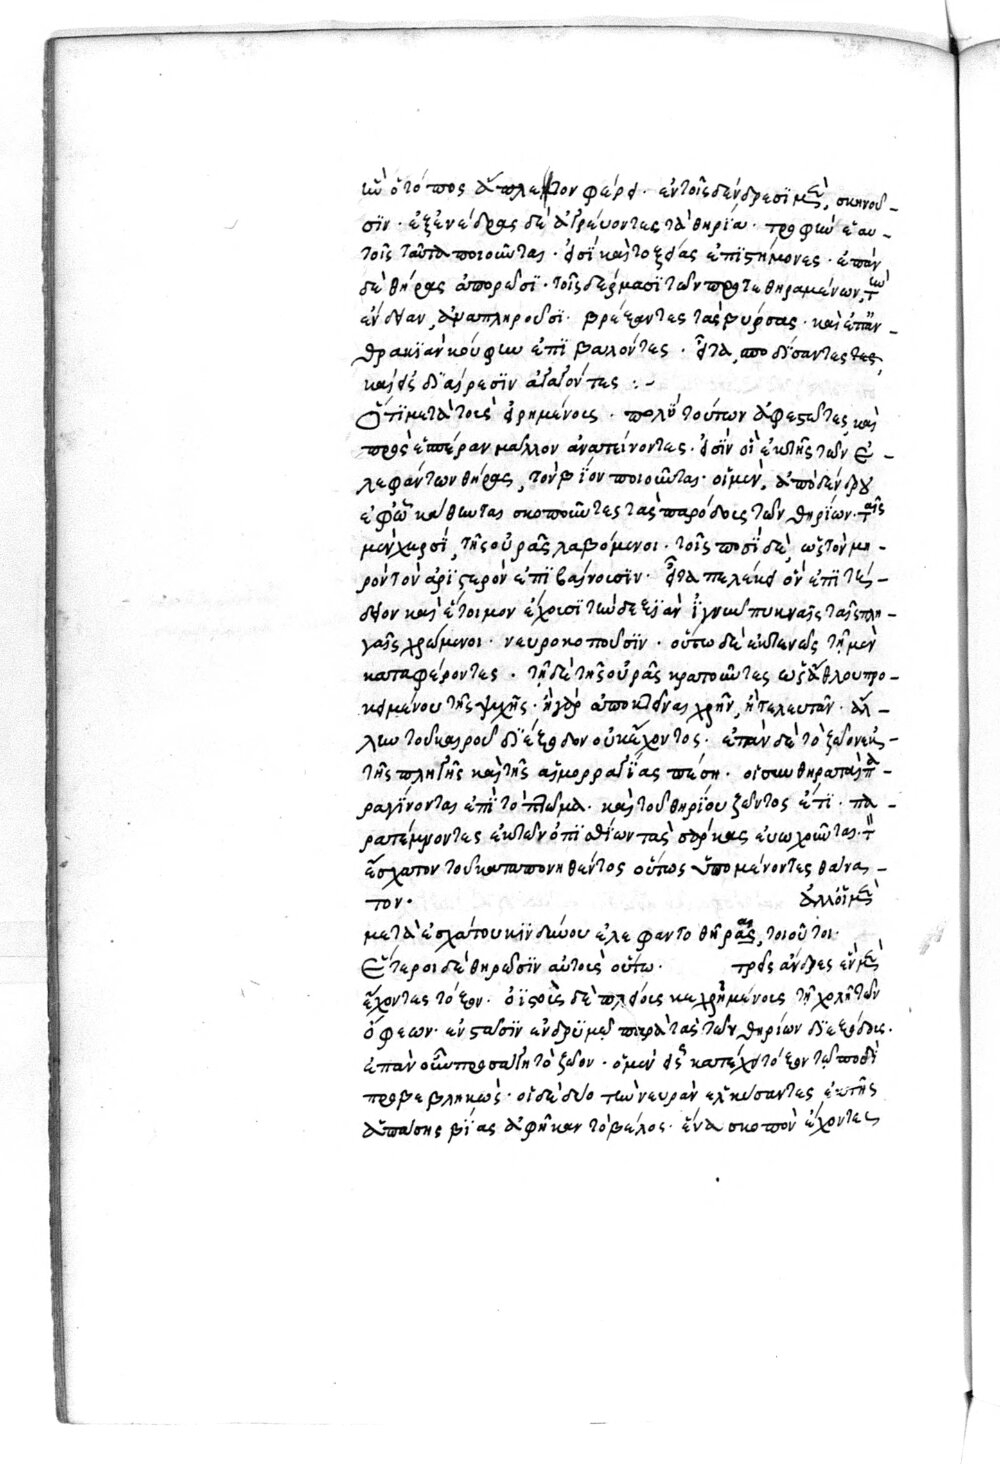 ὧν ὁ τόπος ἄπλετον φέρει· ἐν τοῖς δένδρεσι μὲν, σκηνοῦ-
σιν· ἐξ ἐνέδρας δὲ ἀγρεύοντες τὰ θηρία· τροφὴν ἑαυ-
τοῖς ταῦτα ποιοῦνται· εἰσὶ καὶ τοξείας ἐπιστήμονες· ἐπὰν
δὲ θήρας ἀπορῶσι· τοῖς δέρμασι τῶν πρότε θηραμένων, τὴν
ἔνδειαν, ἀναπληροῦσι· βρέξαντες τὰς βύρσας· καὶ ἐπ' ἀν-
θρακιὰν κούφην ἐπιβαλόντες· εἶτα, αποδύσαντες τες,
καὶ εἰς διαίρεσιν ἀγαγόντες :-
Ὅτι μετὰ τοῖς εἰρημένοις· πολὺ τούτων ἀφεστῶτες, καὶ
πρὸς ἑσπέραν μᾶλλον ἀναπείνοντες· εἰσὶν οἱ ἐκ τῆς τῶν ἐ-
λεφάντων θήρας, τὸν βίον ποιοῦνται· οἱ μὲν, ἀπὸ δένδρου
ἐφ' ὧν κάθωνται σκοποῦντες τὰς παρόδους τῶν θηρίων· ταῖς
μὲν χερσὶ, τῆς οὐρᾶς λαβόμενοι· τοῖς ποσὶ δὲ, ὡς τὸν μη-
ρὸν τὸν ἀριστερὸν ἐπιβαίνουσιν· εἶτα πελέκει ὃν ἐπιτή-
δειον καὶ ἕτοιμον ἔχουσι τὴν δεξιὰν ἰγνῦν πυκναῖς ταῖς πλη-
γαῖς χρώμενοι· νευροκοποῦσιν· οὕτω δὲ ἐκτενῶς τῇ μὲν
καταφέροντες· τῇ δὲ τῆς οὐρᾶς κρατοῦντες ὡς ἄθλου προ-
κειμένου τῆς ψυχῆς· ἢ γὰρ ἀποκτεῖναι χρὴν, ἢ τελευτᾶν· ἄλ-
λην τοῦ καιροῦ διέξοδον οὐκ ἔχοντος· ἐπὰν δὲ τὸ ζῶον ἐκ
τῆς πληγῆς καὶ τῆς αἱμορραγίας πέσῃ· οἱ συνθηραταὶ πα-
ραγίνονται ἐπὶ τὸ πτῶμα· καὶ τοῦ θηρίου ζῶντος ἔτι· πα-
ρατέμνοντες ἐκ τῶν ὀπισθίων τὰς σάρκας εὐωχοῦνται· τὸν
ἔσχατον τοῦ καταπονηθέντος οὕτως ὑπομένοντες θάνα-
τον· ἀλλ' οἱ μὲν
μετὰ ἐσχάτου κινδύνου ἐλεφαντοθῆραι, τοιοῦτοι·
Ἕτεροι δὲ θηρῶσιν αὐτοὺς οὕτω· τρεῖς ἄνδρες ἓν μὲν
ἔχοντες τόξον· ὀϊστοὺς δὲ πλείους κεχρημένοις τῇ χολῇ τῶν
ὄφεων· ἐνστᾶσιν ἐν δρυμῷ παρὰ τὰς τῶν θηρίων διεξόδους·
ἐπὰν οὖν προσάγῃ τὸ ζῶον· ὁ μὲν εἷς κατέχει τόξον τῷ ποδὶ
προβεβληκὼς· οἱ δὲ δύο τὴν νευρὰν ἑλκύσαντες ἐκ τῆς
ἁπάσης βίας ἀφῆκαν τὸ βέλος· ἕνα σκοπὸν ἔχοντες